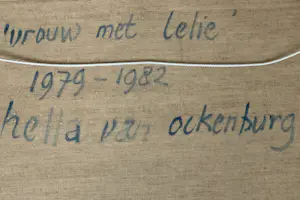 'vrouw met lelie'
1979-1982
hella van ockenburg